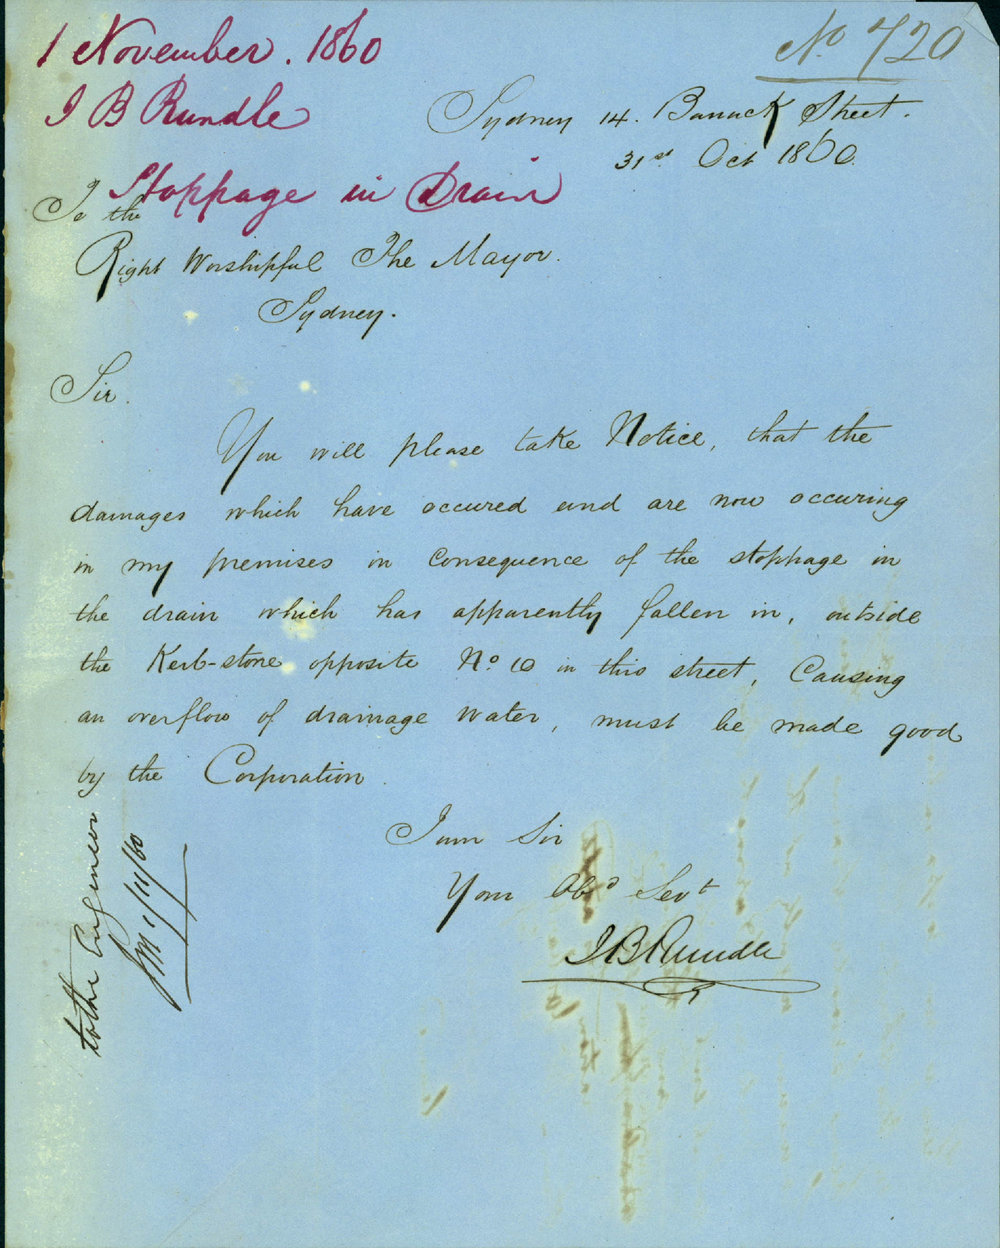 1 November. 1860
No 720
J B Rundle
Sydney 14. Barrack Street.
31st Oct 1860
Stoppage in Drain
To the
Right Worshipful The Mayor.
Sydney.
Sir.
You will please take Notice, that the
damages which have occured and are now occuring
in my premises in consequence of the stoppage in
the drain which has apparently fallen in, outside
the Kerb-stone opposite No 10 in this street, Causing
an overflow of drainage water, must be made good
by the Corporation
I am Sir
Your Obd Servt
J B Rundle
to the Engineer
1/11/60